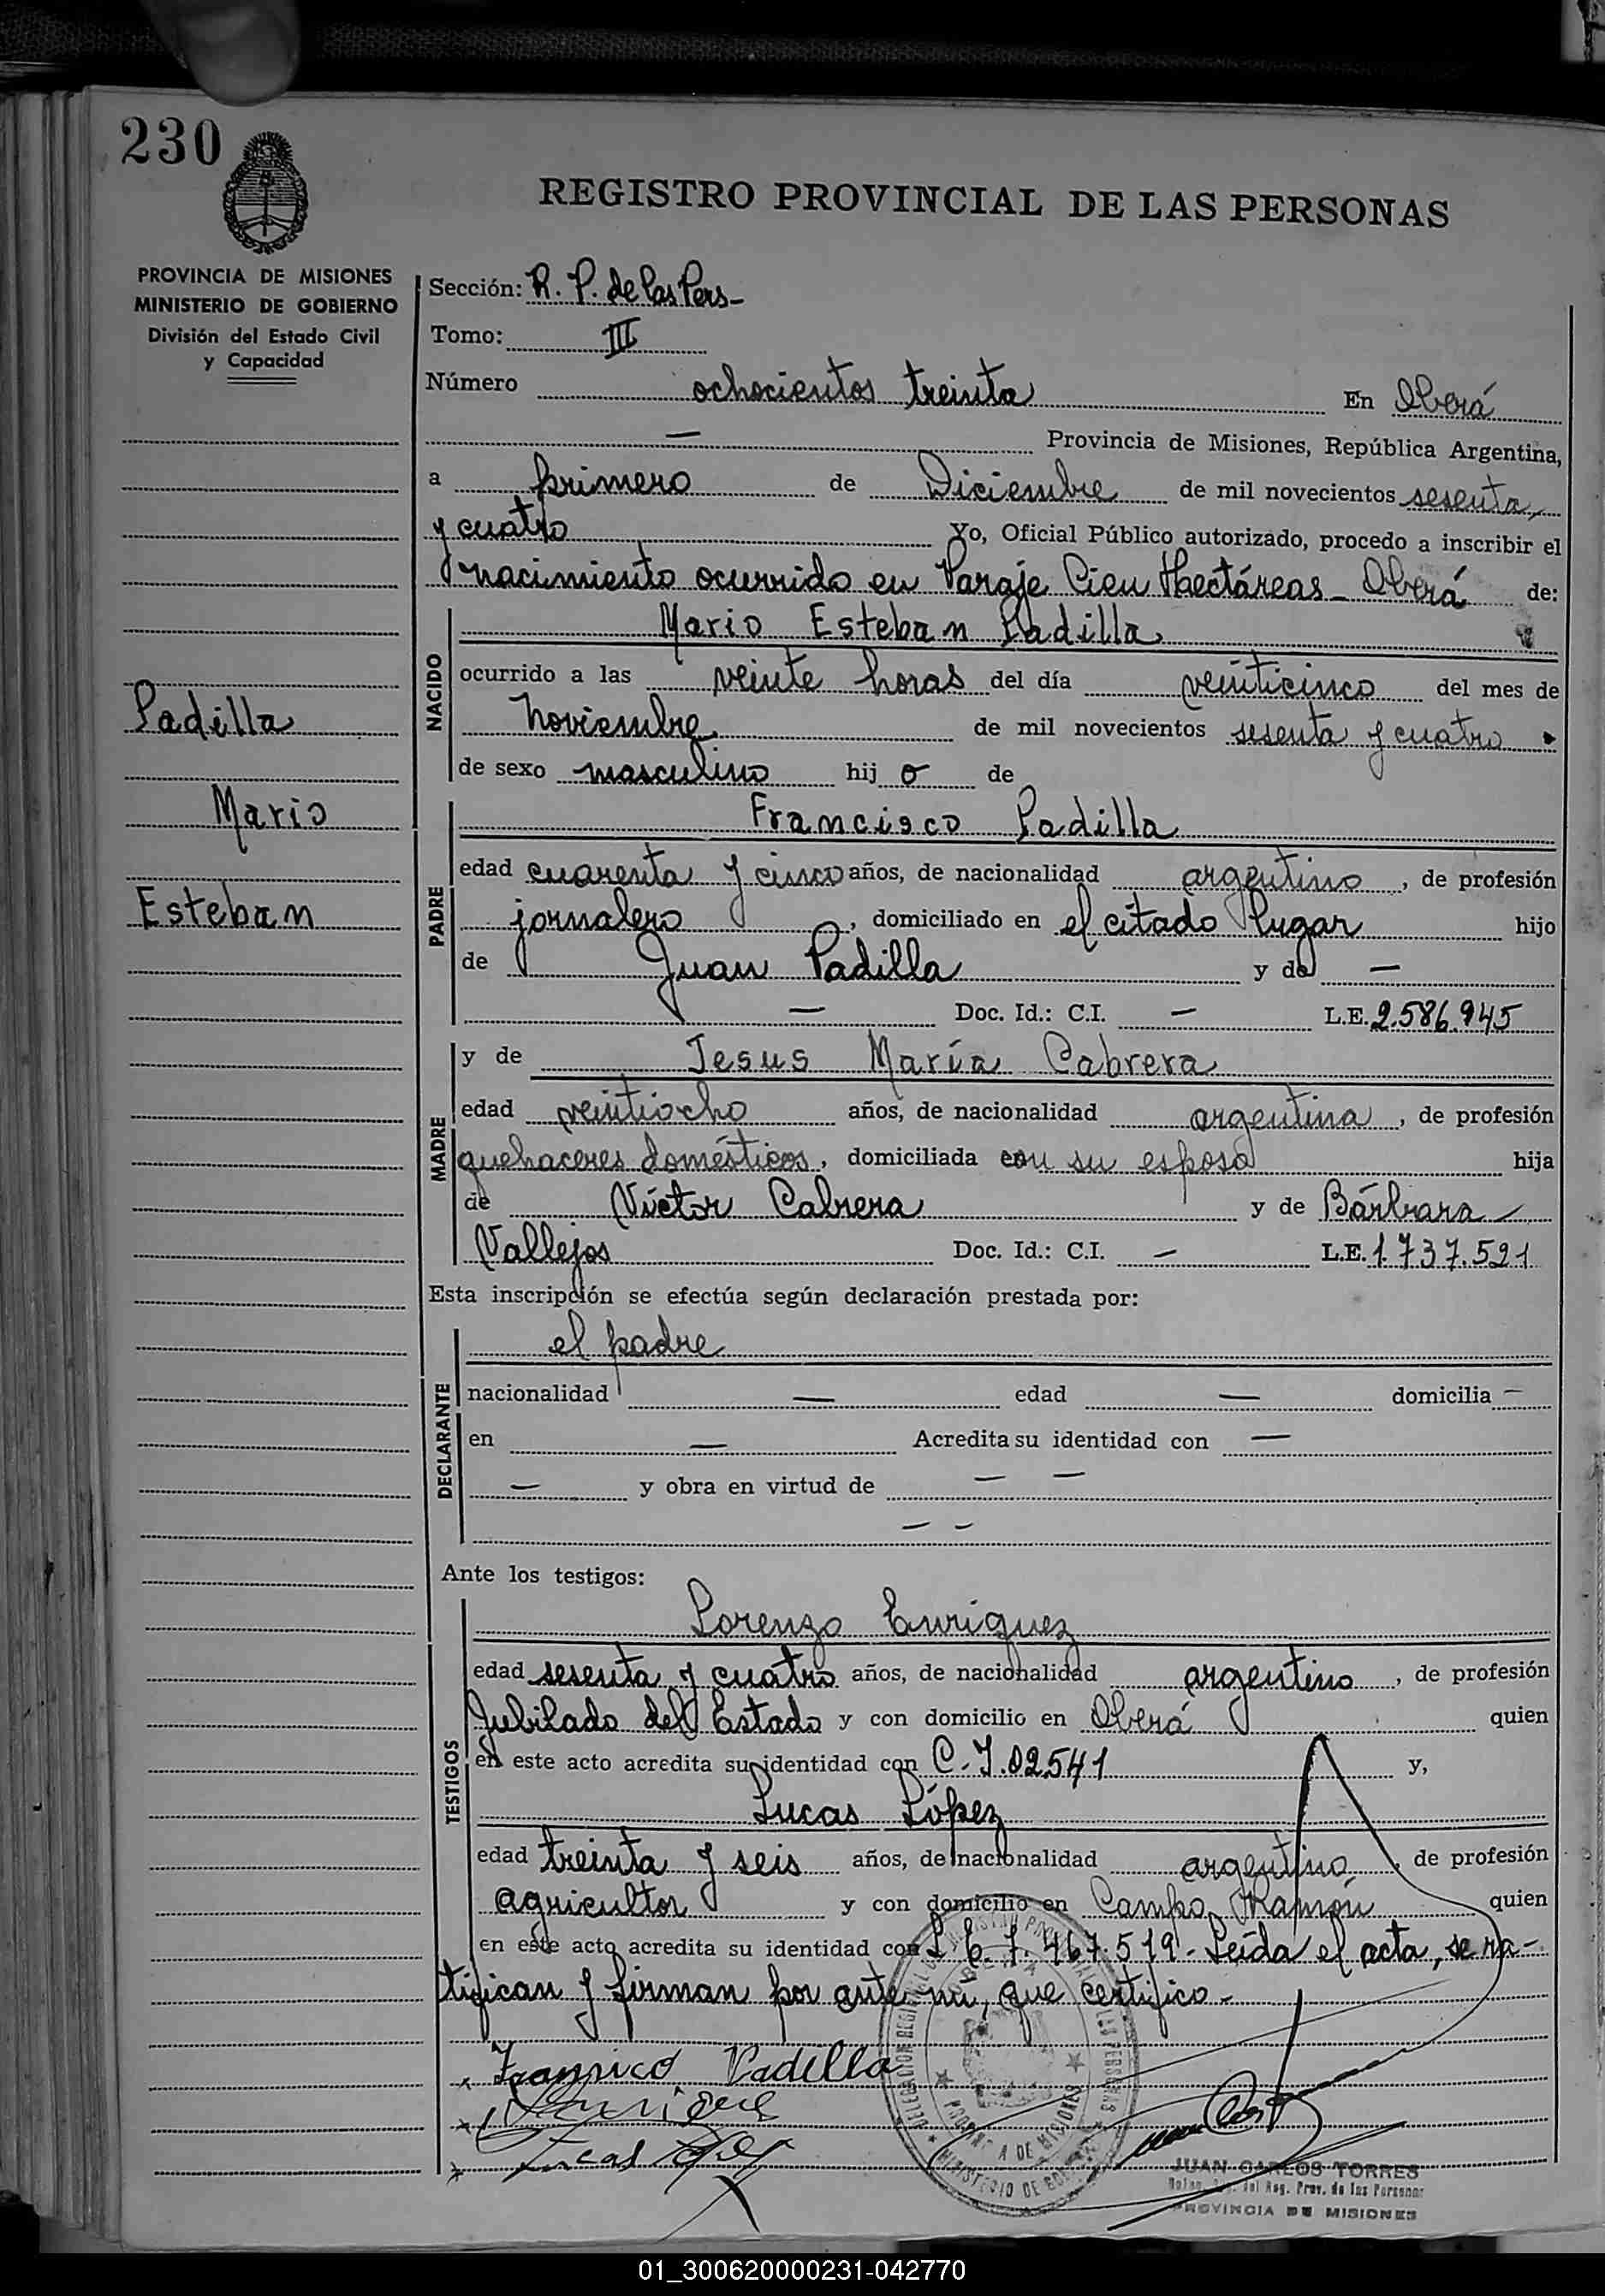 230
REGISTRO PROVINCIAL DE LAS PERSONAS
PROVINCIA DE MISIONES
MINISTERIO DE GOBIERNO
División del Estado Civil
y Capacidad
Sección: R. P. de las Pers-
Tomo: III
Número ochocientos treinta En Oberá
— Provincia de Misiones, República Argentina,
a primero de Diciembre de mil novecientos sesenta
y cuatro Yo, Oficial Público autorizado, procedo a inscribir el
nacimiento ocurrido en Paraje Cien Hectáreas - Oberá de:
NACIDO
Mario Esteban Padilla
ocurrido a las veinte horas del día veinticinco del mes de
noviembre de mil novecientos sesenta y cuatro
de sexo masculino hij o de
Padilla
Mario
Esteban
PADRE
Francisco Padilla
edad cuarenta y cinco años, de nacionalidad argentino, de profesión
jornalero, domiciliado en el citado lugar hijo
de Juan Padilla y de —
— Doc. Id.: C.I. — L.E. 2.586.945
MADRE
y de Jesus María Cabrera
edad veintiocho años, de nacionalidad argentina, de profesión
quehaceres domésticos, domiciliada con su esposo hija
de Víctor Cabrera y de Bárbara
Vallejos Doc. Id.: C.I. — L.E. 1.737.521
Esta inscripción se efectúa según declaración prestada por:
DECLARANTE
el padre
nacionalidad — edad — domicilia —
en — Acredita su identidad con —
— y obra en virtud de — —
— —
Ante los testigos:
TESTIGOS
Lorenzo Enriquez
edad sesenta y cuatro años, de nacionalidad argentino, de profesión
Jubilado del Estado y con domicilio en Oberá quien
en este acto acredita su identidad con C.I. 02.541 y,
Lucas López
edad treinta y seis años, de nacionalidad argentino, de profesión
agricultor y con domicilio en Campo Ramón quien
en este acto acredita su identidad con L.E. 7.467.519 - Leída el acta, se ra-
tifican y firman por ante mí, que certifico -
Francico Padilla
Lucas
JUAN CARLOS TORRES
del Reg. Prov. de las Personas
PROVINCIA DE MISIONES
01_300620000231-042770